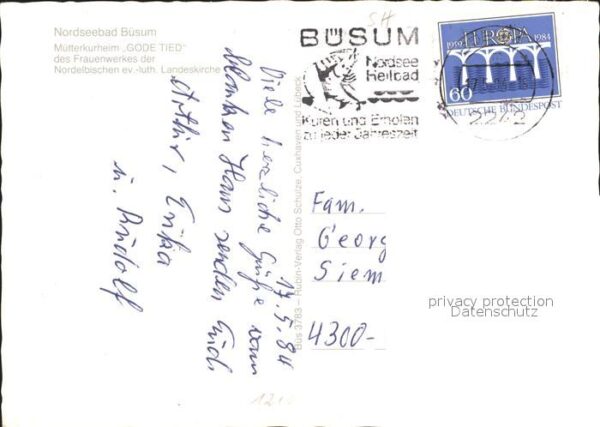 Nordseebad Büsum
Mütterkurheim „GODE TIED"
des Frauenwerkes der
Nordelbischen ev.-luth. Landeskirche
SH
BÜSUM
Nordsee
Heilbad
Kuren und Erholen
zu jeder Jahreszeit
1959 EUROPA 1984
60
DEUTSCHE BUNDESPOST
2242
17.5.84
Viele herzliche Grüße vom
blanken Hans senden Euch
Arthur, Erika
u. Rudolf
Büs 3783 – Rubin-Verlag Otto Schulze, Cuxhaven und Lübeck
Fam.
Georg
Siem
4300-
privacy protection
Datenschutz